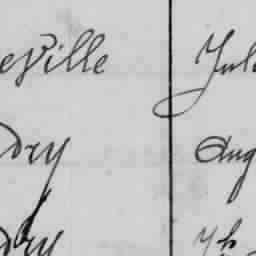 eville Jul
dry Aug
dry